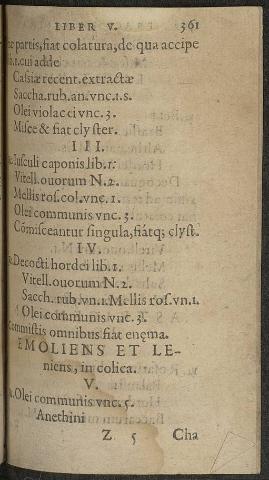 LIBER V. 361
partis, fiat colatura, de qua accipe
cui adde
Cassiæ recent. extractæ
Saccha. rub. an. vnc. 1. s.
Olei violacei vnc. 3.
Misce & fiat clyster.
III.
Iusculi caponis lib. 1.
Vitell. ouorum N. 2.
Mellis ros. col. vnc. 1.
Olei communis vnc. 3.
Comisceantur singula, fiatq; clyst.
IV.
Decocti hordei lib. 1.
Vitell. ouorum N. 2.
Sacch. rub. vn. 1. Mellis ros. vn. 1.
Olei communis vnc. 3.
Commistis omnibus fiat enema.
EMOLIENS ET LE-
niens, in colica.
V.
Olei communis vnc. 5.
Anethini
Z 5 Cha